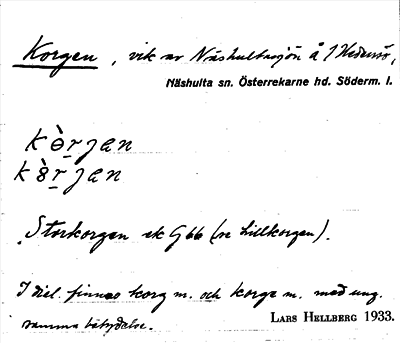 Korgen, vik av Näshultasjön å
Näshulta sn. Österrekarne hd. Söderm. l.
kè̱rjan
kò̱rjan
Storkorgen ek G66 (se Lillkorgen).
I dial. finnas korg m. och korge m. med ung.
samma betydelse. LARS HELLBERG 1933.